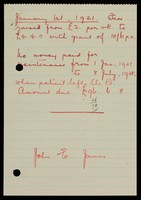 January 1st, 1921. Fees
raised from £2. per wk to
£4.4.0 with grant of 10/6 p.w.
No money paid for
maintenance from 1 Jan. 1921
to 8 July, 1921,
when patient left,
Amount due £96. 6. 8.
John E. James.